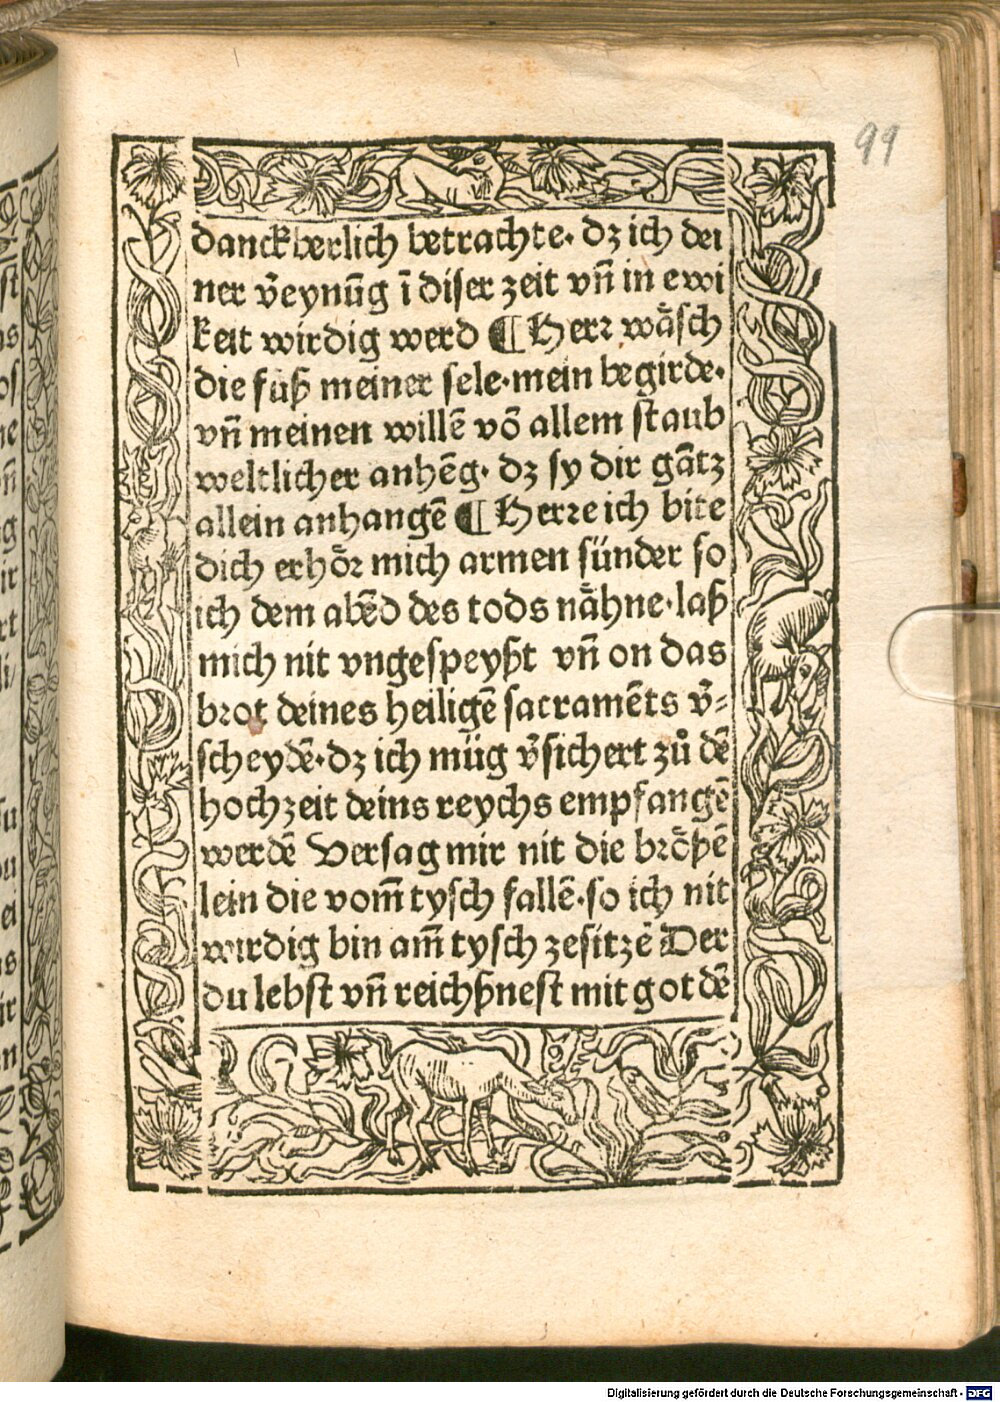 99
danckberlich betrachte· dz ich dei
ner v̄eynūg ī diser zeit vn̄ in ewi
keit wirdig werd ¶ Herꝛ wäsch
die füß meiner sele·mein begirde·
vn̄ meinen willē vō allem staub
weltlicher anhēg· dz sy dir gātz
allein anhangē ¶ Herꝛe ich bite
dich erhöꝛ mich armen sünder so
ich dem abēd des tods nähne·laß
mich nit vngespeyßt vn̄ on das
bꝛot deines heiligē sacramēts v̄⸗
scheydē·dz ich müg v̄sichert zů dē
hochzeit deins reychs empfangē
werdē Versag mir nit die bꝛößē
lein die vom̄ tysch fallē·so ich nit
wirdig bin am̄ tysch zesitzē Der
du lebst vn̄ reichßnest mit got dē
Digitalisierung gefördert durch die Deutsche Forschungsgemeinschaft - DFG